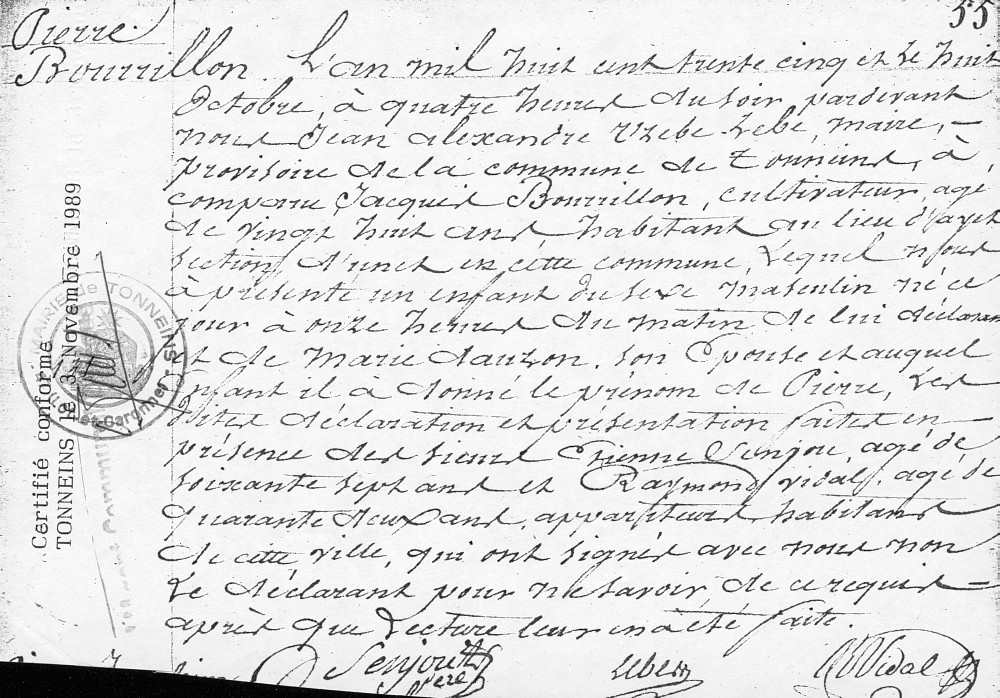 55
Pierre
Bourrillon. L'an mil huit cent trente cinq et le huit
Octobre, à quatre heures du soir, pardevant
nous Jean alexandre Uzebe Lebé, maire,
provisoire de la commune de Tonneins, à
comparu Jacques Bourrillon, cultivateur, agé
de vingt huit ans, habitant au lieu d'
section d'unet en cette commune, Lequel nous
à présenté un enfant du sexe masculin né ce
jour à onze heures du matin, de lui déclarant
et de Marie dauzon, son Epouse et auquel
Enfant il à donné le prénom de Pierre, Les
dites déclaration et présentation faites en
présence des sieurs Etienne Senjou, agé de
soixante sept ans et Raymond Vidal, agé de
quarante deux ans, appariteurs habitans
de cette ville, qui ont signés avec nous non
Le déclarant pour ne savoir de ce requis
après que Lecture leur en a été faite.
Senjou père
Lebé
Vidal
Certifié conforme
TONNEINS le 3 Novembre 1989
MAIRIE de TONNEINS
Lot-et-Garonne